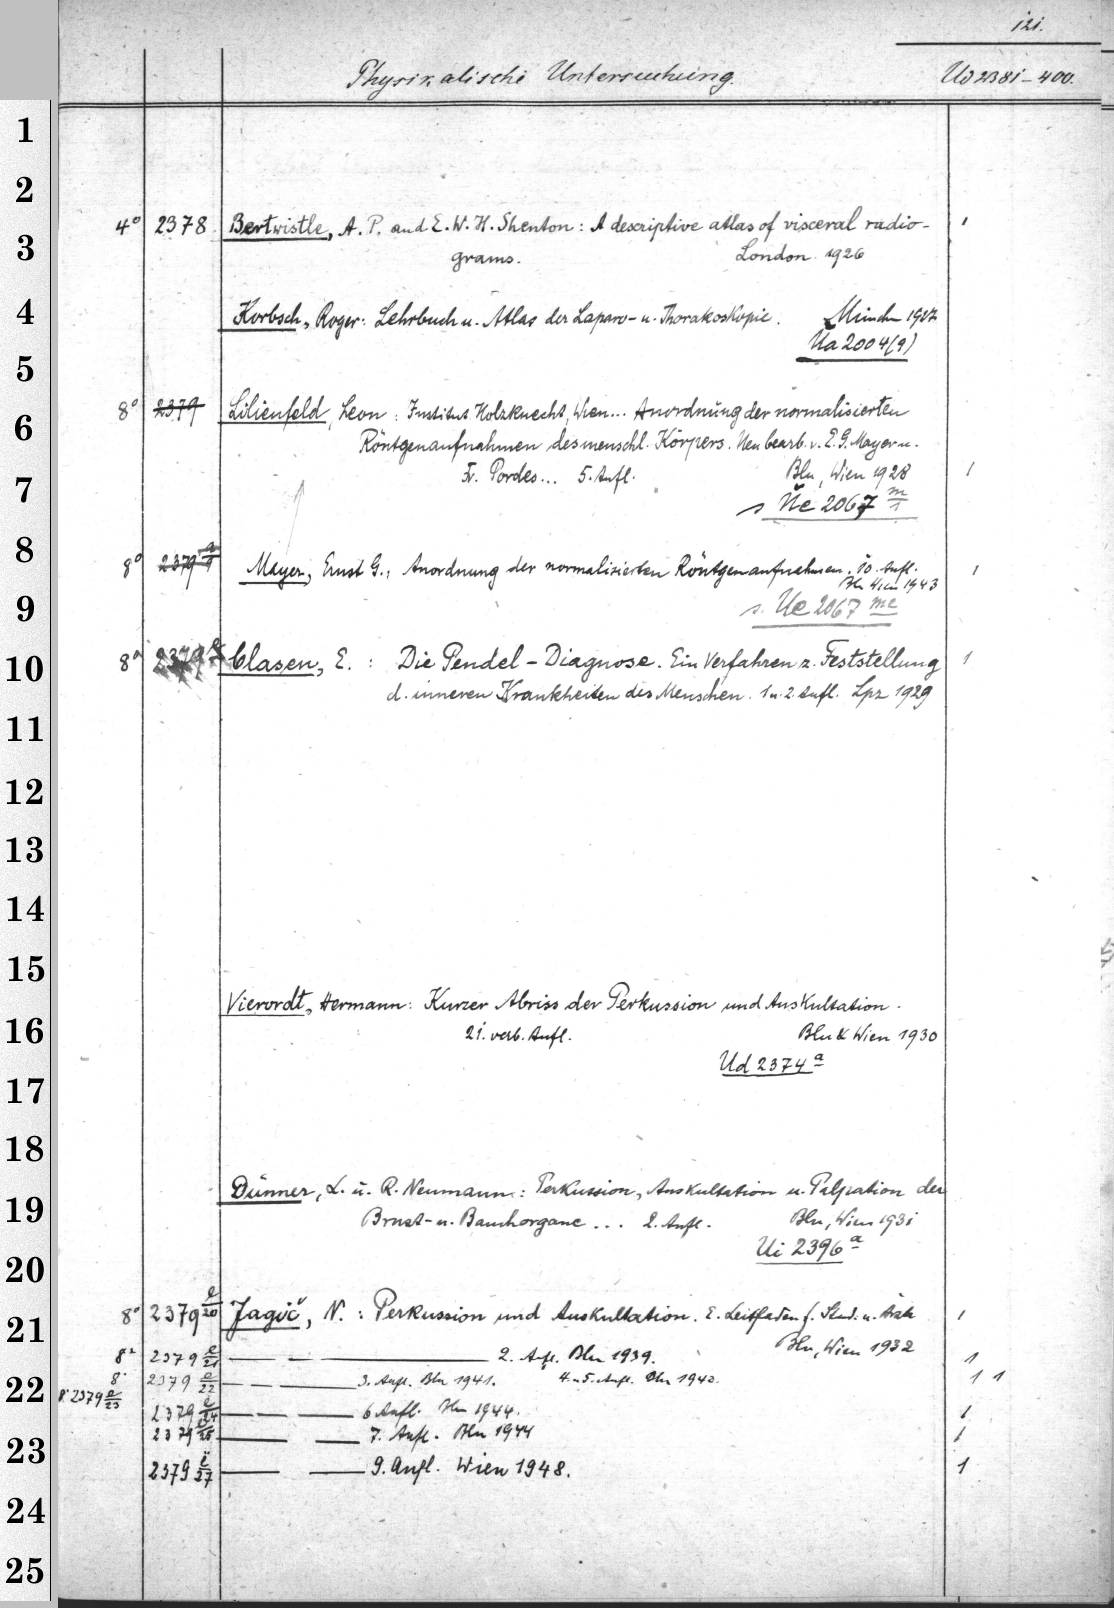 121.
Physikalische Untersuchung. Ud 2381-400.
1
2
4° 2378 Bertwistle, A. P. and E. W. H. Shenton: A descriptive atlas of visceral radio- 1
3
grams. London 1926
4 Korbsch, Roger: Lehrbuch u. Atlas der Laparo- u. Thorakoskopie. Münchn 1927
Ua 2004(9)
5
8° 2379 Lilienfeld, Leon: Institut Holzknecht, Wien... Anordnung der normalisierten
6
Röntgenaufnahmen des menschl. Körpers. Neu bearb. v. E. G. Mayer u.
Fr. Pordes... 5. Aufl. Bln, Wien 1928 1
7 s Ue 2067 m/1
8
8° 2379 a/9 Mayer, Ernst G.: Anordnung der normalisierten Röntgenaufnahmen. 10. Aufl. 1
Bln Wien 1943
9 s. Ue 2067 me
10 8° 2379 Clasen, E. : Die Pendel-Diagnose. Ein Verfahren z. Feststellung 1
d. inneren Krankheiten des Menschen. 1 u. 2. Aufl. Lpz 1929
11
12
13
14
15
Vierordt, Hermann: Kurzer Abriss der Perkussion und Auskultation.
16 21. verb. Aufl. Bln & Wien 1930
Ud 2374 a
17
18
Dünner, L. u. R. Neumann: Perkussion, Auskultation u. Palpation der
19 Brust- u. Bauchorgane ... 2. Aufl. Bln, Wien 1931
Ui 2396 a
20
8° 2379 e/20 Jagič, N. : Perkussion und Auskultation. E. Leitfaden f. Stud. u. Ärzte 1
21
Bln, Wien 1932
8° 2379 e/21 — — — 2. Aufl. Bln 1939. 1
8° 2379 e/22 — — — 3. Aufl. Bln 1941. 4. u. 5. Aufl. Bln 1942. 1 1
22
8° 2379 e/23
2379 e/24 — — — 6 Aufl. Bln 1944. 1
2379 e/25 — — 7. Aufl. Bln 1944 1
23
2379 e/27 — — 9. Aufl. Wien 1948. 1
24
25